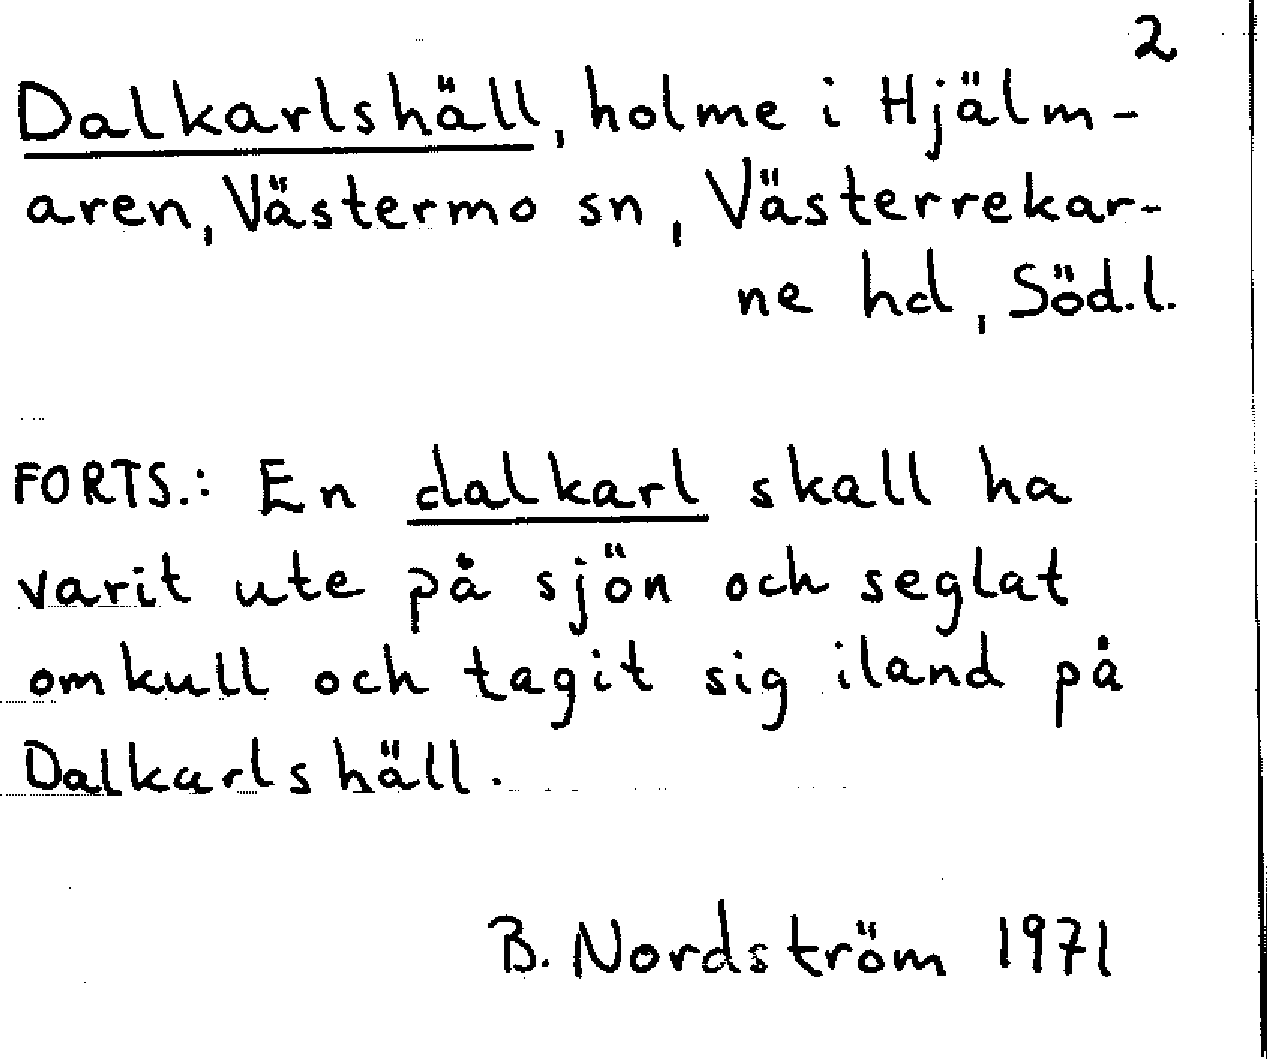 2
Dalkarlshäll, holme i Hjälm-
aren, Västermo sn, Västerrekar-
ne hd, Söd.l.
FORTS.: En dalkarl skall ha
varit ute på sjön och seglat
omkull och tagit sig iland på
Dalkarlshäll.
B. Nordström 1971